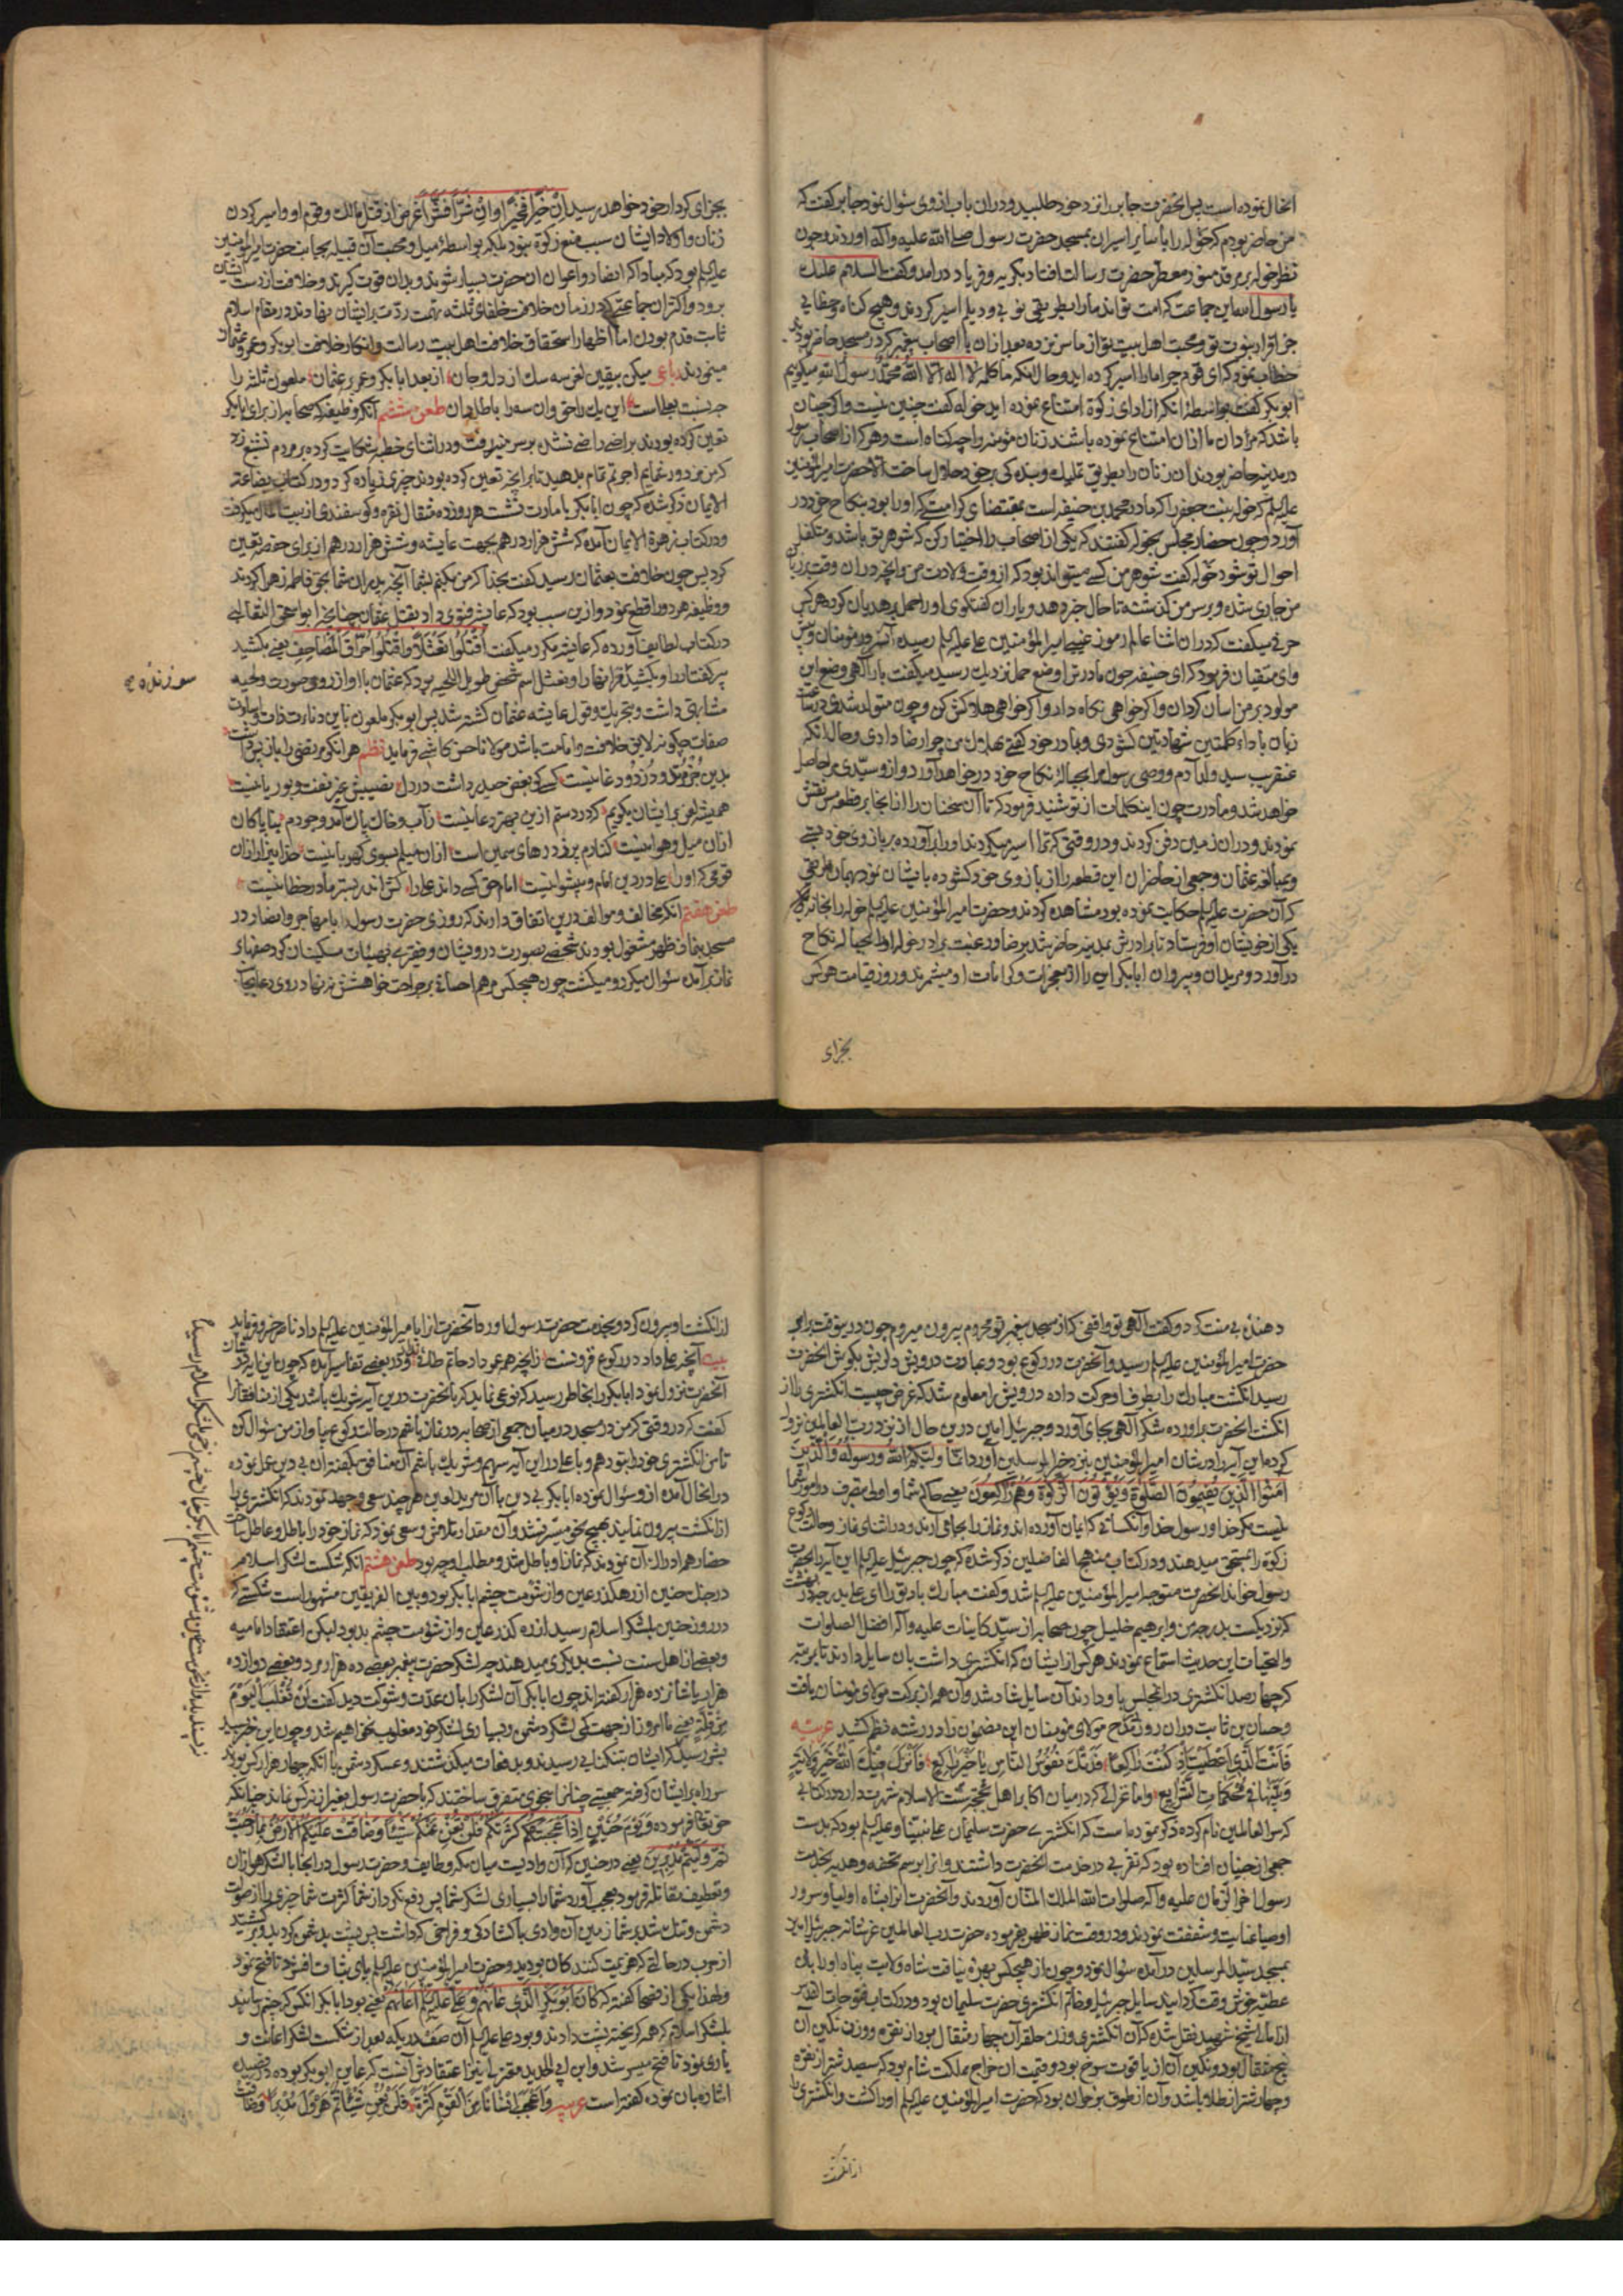 انحال نموده است پس آنحضرت جابر را نزد خود طلبید و دران باب از وی سؤال نمود جابر گفت که
من حاضر بودم که خوله را با سایر اسیران بمسجد حضرت رسول صلی الله علیه وآله اوردند و چون
نظر خوله بر مرقد منور معطر حضرت رسالت افتاد بگریه و فریاد درامد و گفت السلام علیک
یا رسول الله این جماعت که امت تواند ما را بطریقی نوبی و دیلم اسیر کردند و هیچ گناه و خطایی
جز اقرار بنبوت تو و محبت اهل بیت تو از ما سر نزده بعد ازان با اصحاب پیغمبر که در مسجد حاضر بودند
خطاب نمود که ای قوم چرا ما را اسیر کرده اید و حال آنکه ما کلمه لا اله الا الله محمد رسول الله میگویم
ابو بکر گفت بواسطۀ انکه از ادای زکوة امتناع نموده اید خوله گفت چنین نیست و اگر چنان
باشد که مردان ما ازان امتناع نموده باشند زنان مؤمنه را چه گناه است و هر که از اصحاب رسول
در مدینه حاضر بودند ان زنان را بطریق تملیک و بندگی بر خود حلال ساخت الا حضرت امیرالمؤمنین
علیه السلم که خوله بنت جعفر را که مادر محمد بن حنیفه است بمقتضای کرامتی که او را بود بنکاح خود در
آورد و چون حضار مجلس بخوله گفتند که یکی از اصحاب را اختیار کن که شوهر تو باشد و متکفل
احوال تو شود خوله گفت شوهر من کسی میتواند بود که از وقت ولادت من و انچه دران وقت بر زبان
من جاری شده و بر سر من گذشته تا حال خبر دهد و یاران گفتگوی او را حمل بر هذیان کرده هر کس
حرفی میگفت که دران اثنا عالم رموز غیبی امیرالمؤمنین علی علیه السلم رسیده آن سرور مؤمنان و پیش
وای متقیان فرمود که ای حنفیه چون مادرت را وضع حمل نزدیک رسید میگفت بار الهی وضع این
مولود بر من اسان گردان و اگر خواهی نگاه دار و اگر خواهی هلاک کن و چون متولد شدی در ساعت
زبان باداء کلمتین شهادتین گشودی و بمادر خود گفتی بهلاک من چرا رضا دادی و حال انکه
عنقریب سید ولد آدم و وصی رسول مرا بحبالۀ نکاح خود در خواهد آورد و از و سیدی مرا حاصل
خواهد شد و مادرت چون این کلمات از تو شنید فرمود که تا آن سخنان را در انجا بر قطعه مس نقش
نمودند و دران زمین دفن کردند و در وقتی که ترا اسیر میکردند او را برآورده بر بازوی خود بستی
و بمبالغه عثمان و جمعی از حاضران این قطعه را از بازوی خود گشوده بایشان نمود بهمان طریقی
که آن حضرت علیه السلم حکایت نموده بود مشاهده کردند و حضرت امیرالمؤمنین علیه السلم خوله را بخانۀ
یکی از خویشان او فرستاد تا برادرش بمدینه حاضر شد برضا و رغبت برادر خوله او را بحبالۀ نکاح
درآورد و مریدان و پیروان ابابکر این را از معجزات و کرامات او میشمرند و روز قیامت هر کس
بجزای
بجزای کردار خود خواهد رسید ان خیراً فخیراً وان شراً فشراً غرض از قتل مالک و قوم او و اسیر کردن
زنان و اولاد ایشان سبب منع زکوة نبود بلکه بواسطۀ میل و محبت آن قبیله بجانب حضرت امیرالمؤمنین
علیه السلم بود که مبادا که انصار و اعوان ان حضرت بسیار شوند و بدان قوت گیرند و خلافت از دست ایشان
برود و اکثر ان جماعتی که در زمان خلافت خلفای ثلثه تهمت ردت بر ایشان نهادند در مقام اسلام
ثابت قدم بودند اما اظهار استحقاق خلافت اهل بیت رسالت و انکار خلافت ابو بکر و عمر و عثمان
مینمودند رباعی میکن بیقین لعن سه سک از دل و جان از بعد ابا بکر و عمر بر عثمان ملعون ثلثه را
چه نسبت بعلی است این یک را حق وان سه را باطل دان طعن ششم آنکه وظیفه که صحابه از برای ابا بکر
تعین کرده بودند بران راضی نشد بر سر منبر رفت و در اثنای خطبه شکایت کرده بر مردم تشنیع زد
که من مزدور شمایم اجرتم تمام بدهید تا بر انچه تعین کرده بودند چیزی زیاده کرد و در کتاب بضاعة
الایمان ذکر شده که چون ابابکر بامارت نشست هر روز ده مثقال نقره و گوسفندی از بیت المال میگرفت
و در کتاب زهرة الایمان آمده که شش هزار درهم بجهت عایشه و شش هزار درهم از برای حفصه تعین
کرد پس چون خلافت بعثمان رسید گفت بخدا که من نکنم بشما آنچه پدران شما بحق فاطمه زهرا کردند
و وظیفه هر دو را قطع نمود و ازین سبب بود که عایشه فتوی داد بقتل عثمان چنانچه ابو اسحق الثعالبی
در کتاب لطایف آورده که عایشه مکرر میگفت اقتلوا نعثلا و اقتلوا حراق المصاحف یعنی بکشید
پیر کفتار را و بکشید قران سوزنده را و نعثل اسم شخص طویل اللحیه بود که عثمان با او از روی صورت و لحیه
مشابهتی داشت و بتحریک و قول عایشه عثمان کشته شد پس ابو بکر ملعون باین دناءت ذات و اساءت
صفات چگونه لایق خلافت و امامت باشد مولانا حسن کاشی فرماید نظم هر انکو مرتضی را باز پس داشت
طعن هفتم انکه مخالف و موالف درین اتفاق دارند که روزی حضرت رسول با مهاجر و انصار در
مسجد بنماز ظهر مشغول بودند شخصی بصورت درویشان و فقری بهیئات مسکینان گرد صفهای
نماز برآمده سؤال میکرد و میگشت چون هیچکس مرهم احسان بر جراحت خواهشش ننهاد روی دعا بجانب
سوزنده صح
دهندۀ بی منت کرد و گفت الهی تو واقفی که از مسجد پیغمبر تو محروم بیرون میروم چون درین وقت برابر
حضرت امیرالمؤمنین علیه السلم رسید و آنحضرت در رکوع بود و عبارت درویش دلریش بگوش انحضرت
رسید انگشت مبارک را بطرف او حرکت داده درویش را معلوم شد که غرض چیست انگشتری را از
انگشت انحضرت براورده شکر الهی بجای آورد و جبرئیل امین درین حال از نزد رب العالمین نزول
کرده این آیه را در شان امیرالمؤمنین بنزد خیر المرسلین آورد انما ولیکم الله ورسوله والذین
آمنوا الذین یقیمون الصلوة ویؤتون الزکوة وهم راکعون یعنی حاکم شما و اولی بتصرف در امور شما
نیست مگر خدا و رسول خدا و آنکسانی که ایمان آورده اند و نماز را بجا می آرند و در اثنای نماز و حالت رکوع
زکوة را بمستحق میدهند و در کتاب منهج الفاضلین ذکر شده که چون جبرئیل علیه السلم این آیه را بحضرت
رسول خواند انحضرت متوجه امیرالمؤمنین علیه السلم شد و گفت مبارک باد ترا ای علی
والتحیات این حدیث استماع نمودند هر کس از ایشان که انگشتری داشت بان سایل دادند تا بمرتبه
که چهار صد انگشتری درانمجلس باو دادند آن سایل شاد شد و آن هم از برکت مولای مؤمنان یافت
و حسان بن ثابت دران روز مداح مولای مومنان این مضمون را در رشته نظم کشید عربیه
فانت الذی اعطیت اذ کنت راکعا فدتک نفوس الناس یا خیر راکع فانزل فیک الله خیر ولایة
وبینها فی محکمات الشرایع و امام غزالی که درمیان اکابر اهل سنت بحجة الاسلام شهرت دارد در کتابی
که سر العالمین نام کرده ذکر نموده است که انگشتری حضرت سلیمان علی نبینا و علیه السلم بود که بدست
جمعی از جنیان افتاده بود که تقربی در خدمت انحضرت داشتند و انرا برسم تحفه و هدیه بخدمت
رسول اخر الزمان علیه وآله صلوات الله الملک المنان آوردند و آنحضرت انرا بشاه اولیا و سرور
اوصیا عنایت و شفقت نمودند و در وقت نماز ظهر بفرموده حضرت رب العالمین عز شانه جبرئیل امین
بمسجد سید المرسلین درآمده سؤال نمود و چون از هیچکس بهره نیافت شاه ولایت پناه او را بان
عطیه خوش وقت گردانید سایل جبرئیل و خاتم انگشتری حضرت سلیمان بود و در کتاب فتوحات القدس
از امالی شیخ شهید نقل شده که آن انگشتری وزن حلقه آن چهار مثقال بود از نقره و وزن نگین آن
پنج مثقال بود و نگین آن از یاقوت سرخ بود و قیمت ان خراج مملکت شام بود که سیصد شتر از نقره
و چهار شتر از طلا باشد و آن از طوق بن حران بود که حضرت امیرالمؤمنین علیه السلم او را کشت و انگشتری را
از انگشت
از انگشت او بیرون کرد و بخدمت حضرت رسول اورد و آنحضرت انرا بامیرالمؤمنین علیه السلم داد
بیت آنچه علی داد در رکوع فزونست زانچه همه عمر داد حاتم طائی و در بعضی تفاسیر آمده که چون این آیه در شان
آنحضرت نزول نمود ابابکر را بخاطر رسید که نوعی نماید که با آنحضرت درین آیه شریک باشد بیکی از منافقان
گفت که در وقتی که من در مسجد درمیان جمعی از صحابه در نماز باشم در حالت رکوع بیا و از من سؤال کن
تا من انگشتری خود را بتو دهم و با علی در این آیه سهیم و شریک باشم آن منافق بگفته ان بی دین عمل نموده
درانحال آمده از و سؤال نموده ابابکر بی دین با آن مرید لعین هر چند سعی و جهد نمودند که انگشتری را
از انگشت بیرون نمایند بهیچ نحو میسر نشد و آن مقدار تلاش و سعی نمود که نماز خود را باطل و عاطل ساخت
حضار هم ادراک آن نمودند که نماز او باطل شد و مطلب او چه بود طعن هشتم انکه شکست لشکر اسلام
در جنک حنین از رهگذر عین و از شومت چشم ابابکر بود و بین الفریقین مشهور است شکستی که
در روز حنین بلشکر اسلام رسید از ره گذر عین و از شومت چشم بد بود لیکن اعتقاد امامیه
و بعضی از اهل سنت نسبت بدیگری میدهند چه لشکر حضرت پیغمبر بعضی ده هزار مرد و بعضی دوازده
هزار یا شانزده هزار گفته اند چون ابابکر آن لشکر را بان عدت و شوکت دید گفت لن نغلب الیوم
من قلة یعنی ما امروز از جهت کمی لشکر و دشمن و بسیاری لشکر خود مغلوب نخواهیم شد و چون این خبر رسید
سر راه بر ایشان گرفته جمعیتی چنان را بنحوی متفرق ساختند که با حضرت رسول بغیر از نه کس نماند چنانکه
حق تعالی فرموده ویوم حنین اذ اعجبتکم کثرتکم فلن تغن عنکم شیئا وضاقت علیکم الارض بما رحبت
ثم ولیتم مدبرین یعنی در حنین که آن وادیست میان مکه و طایف و حضرت رسول درانجا با لشکر هوازن
و ثقیف مقاتله فرمود بعجب آورد شما را بسیاری لشکر شما پس دفع نکرد از شما کثرت شما چیزی را از صولت
دشمن و تنک شد بر شما زمین آن وادی با گشادگی و فراخی که داشت پس پشت بدشمن کردید و برگشتید
از حرب در حالتی که هزیمت کنندگان بودید و حضرت امیرالمؤمنین علیه السلم پای ثبات افشرد تا فتح نمود
و لهذا یکی از فصحا گفته که کان ابو بکر الذی عانهم و علی علیه السلم اعانهم یعنی بود ابا بکر انکس که چشم رسانید
بلشکر اسلام که همه گریخته پشت دادند و بود علی علیه السلم آن صفدری که بعد از شکست لشکر اعانت و
یاری نمود تا فتح میسر شد و ابن ابی الحدید معتزلی را نیز اعتقادش آنست که عاین ابو بکر بوده در قصیده
اشاره بان نموده گفته است عربیه واعجب انسانا من القوم کثرة فلن تغن شیئا ثم هرول مدبرا